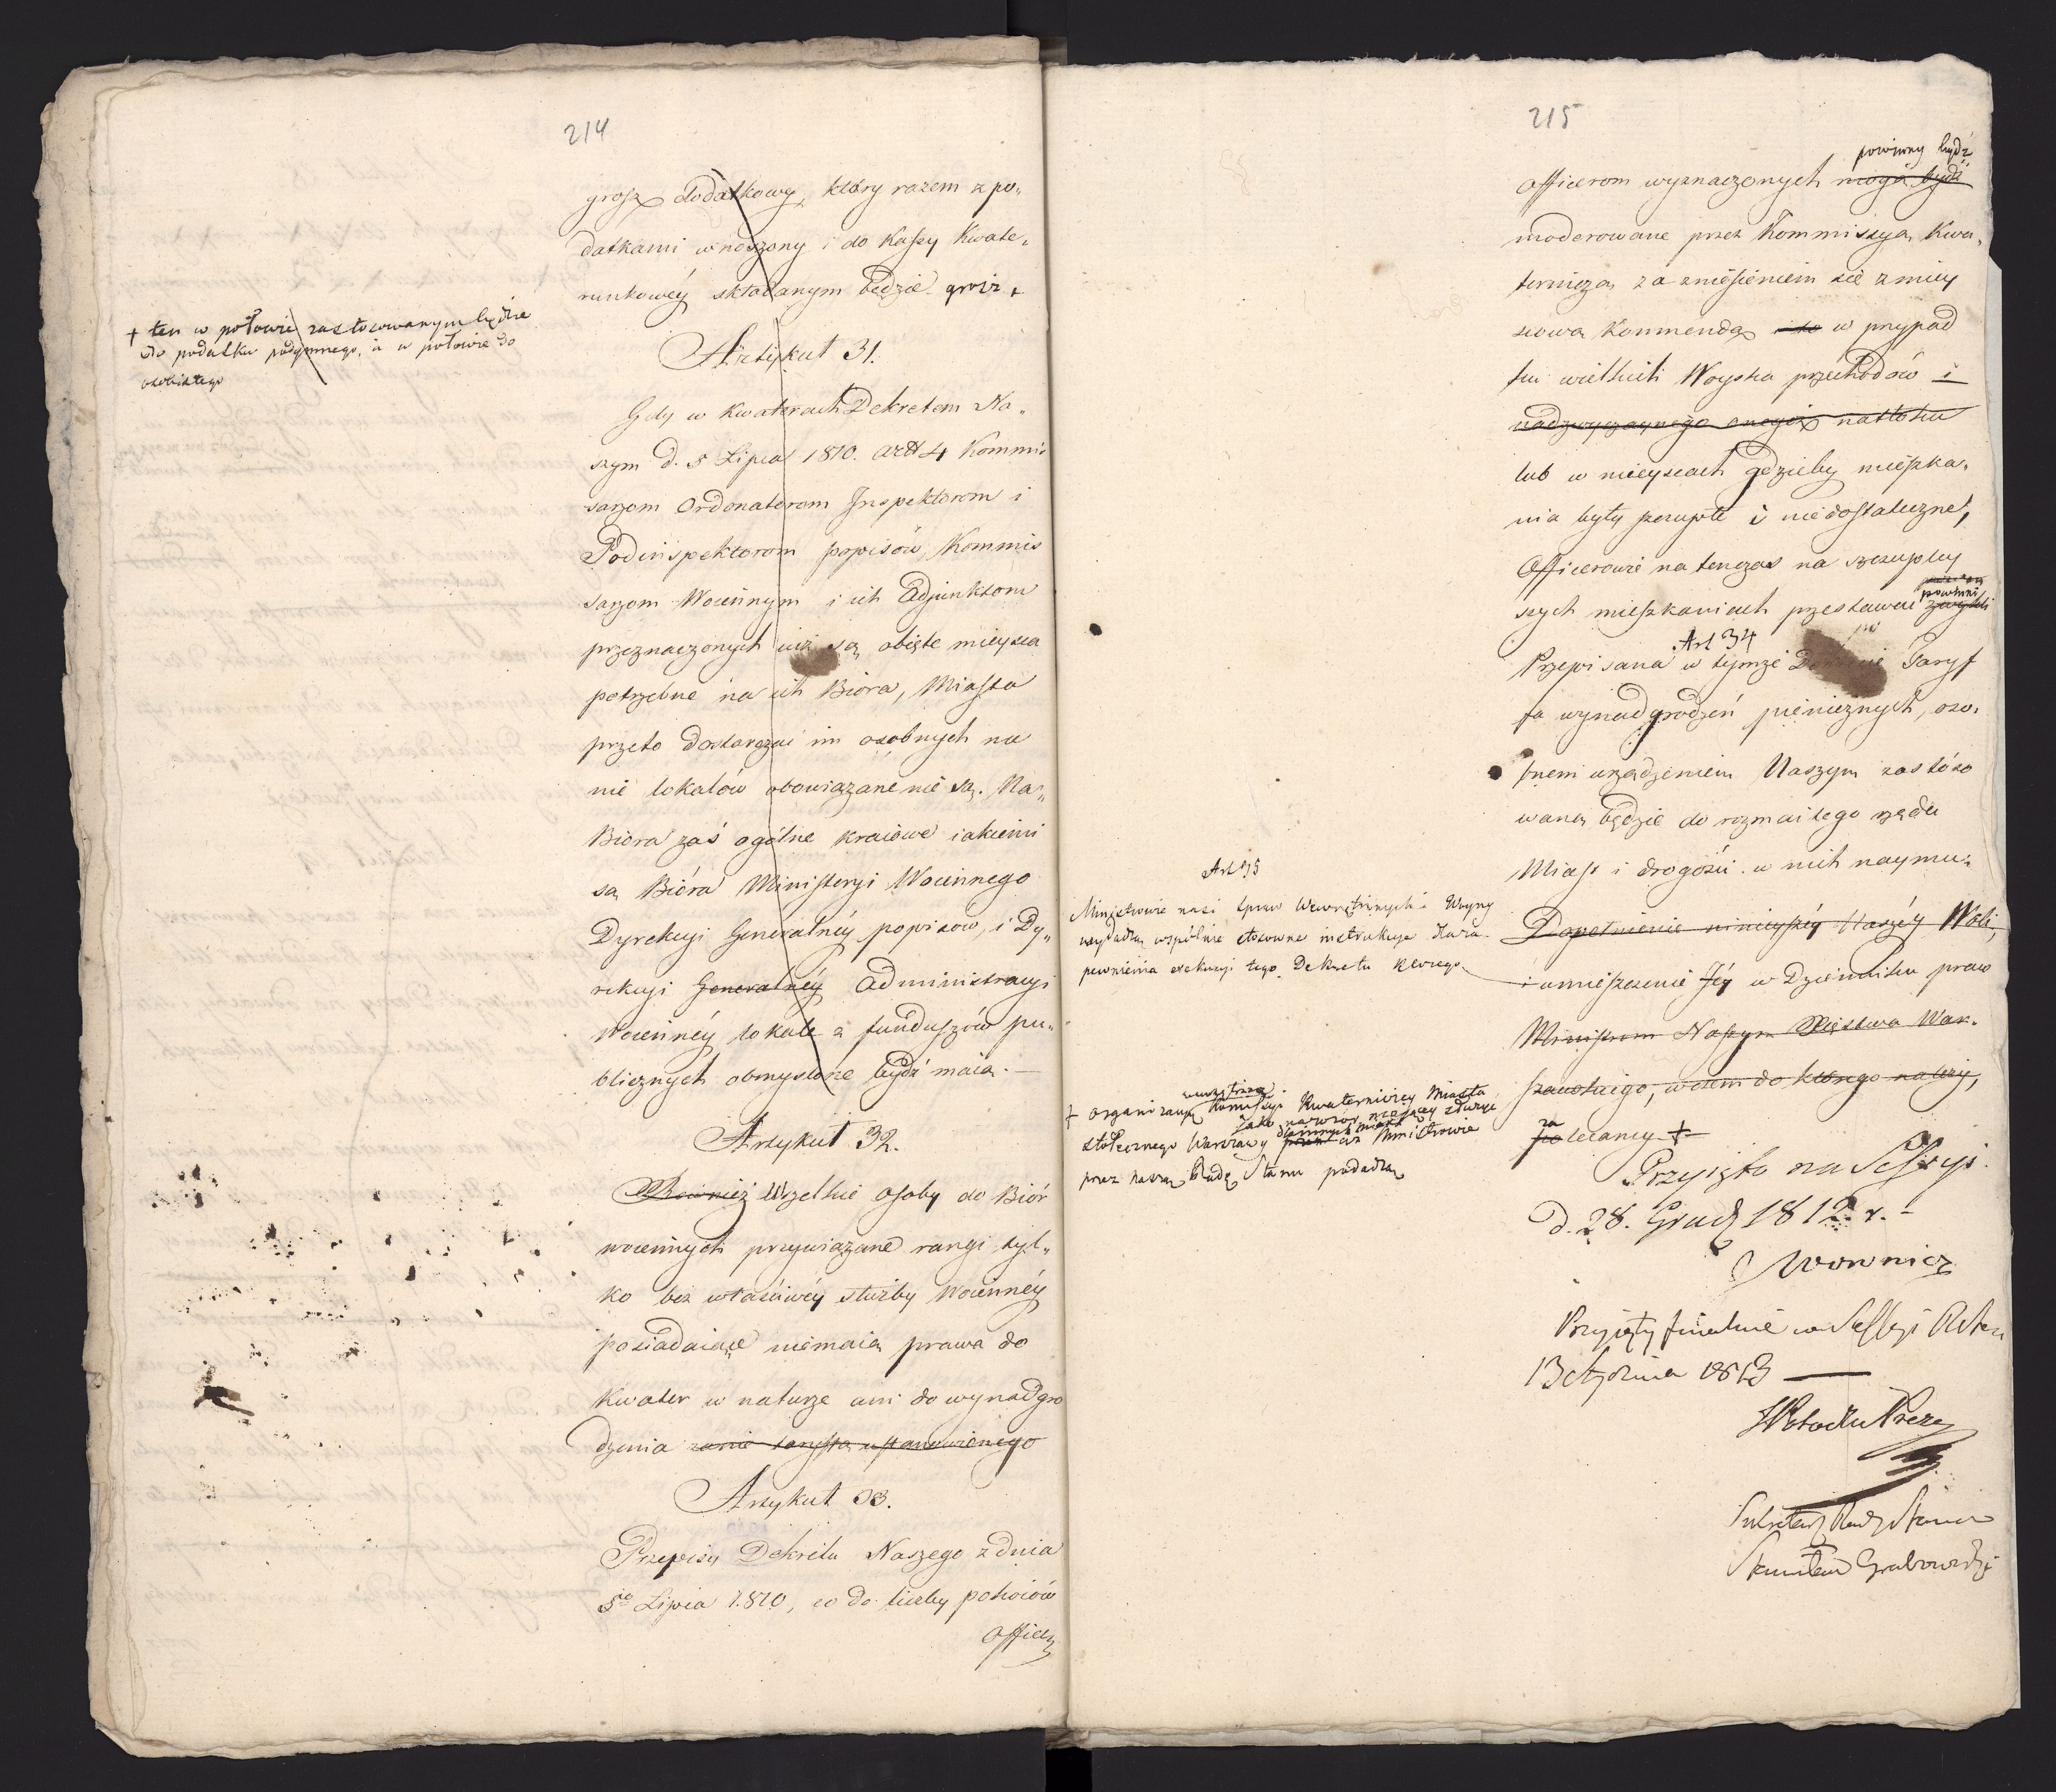 214
grosz dodatkowy, który razem z po„
datkami wnoszony i do Kassy Kwate„
runkowéy składanym będzie grosz +
+ ten w połowie zastosowanym będzie
do podatku podymnego, a w połowie do
osobistego
Artykuł 31.
Gdy w Kwaterach Dekretem Na„
szym d. 5 Lipca 1810. art 4 Kommis
sarzom Ordonatorom Inspektorom i
Podinspektorom popisów, Kommis
sarzom Woiennym i ich Adjunktom
przeznaczonych iuż są obięte mieysca
potrzebne na ich Bióra, Miasta
przeto dostarczać im osobnych na
nie lokalów obowiązane nie są. Na„
Biora zaś ogólne kraiowe iakiemi
są Bióra Ministeryi Woiennego
Dyrekcyi Generalnéy popisow, i Dy„
rekcyi Generalnéy Administracyi
Woiennéy lokale z funduszów pu„
blicznych obmyślone bydź maią. —
Artykuł 32.
Również Wszelkie osoby do Biór
woiennych przywiązane rangi tyl„
ko bez właściwéy służby Woiennéy
posiadaiące niemaią prawa do
Kwater w naturze ani do wynadgro
dzenia za nie taryffą ustanowionego
Artykuł 33.
Przepisy Dekretu Naszego z dnia
5go Lipca 1810, co do liczby pokoiów
Officer
215
powinny bydź
Officerom wyznaczonych mogą bydź
moderowane przez Kommissyą Kwa„
terniczą za zniesieniem się z miey
scową Kommendą w przypad
ku wielkich Woyska przechodów i
nadzwyczaynego onegoż natłoku
lub w mieyscach gdzieby mieszka„
nia były szczupłe i niedostateczne,
Officerowie na tenczas na szczupley
szych mieszkaniach przestawać powinni
Art 34
Przepisana w tymże Dekrecie Taryf
fa wynadgrodzeń pieniężnych, oso„
bnem urządzeniem Naszym zastóso
waną będzie do rozmaitego rzędu
Miast i drogości w nich naymu.
Art 35
Ministrowie nasi Spraw Wewnętrznych i Woyny
wydadzą wspólnie stosowne instrukcye dla za
pewnienia exekucyi tego Dekretu którego
Dopełnienie ninieyszéy Naszéy Woli,
i umieszczenie Jéy w Dzienniku praw
Ministrom Naszym Xięstwa War„
szawskiego, w czem do którego należy,
za
polecamy +
+ organizacyą wewnętrzną Komissyi Kwaterniczey Miasta
jako na wzór mającey służyć
dla innych miast
stołecznego Warszawy ciż Ministrowie
przez naszą Radę Stanu podadzą
Przyięto na Sessyi
D. 28. Grud 1812. r. –
J Wownicz
Przyięty finalnie na Sessyi
13 Stycznia 1813 —
Sekretarz Rady Stanu
Stanisław Grabowski